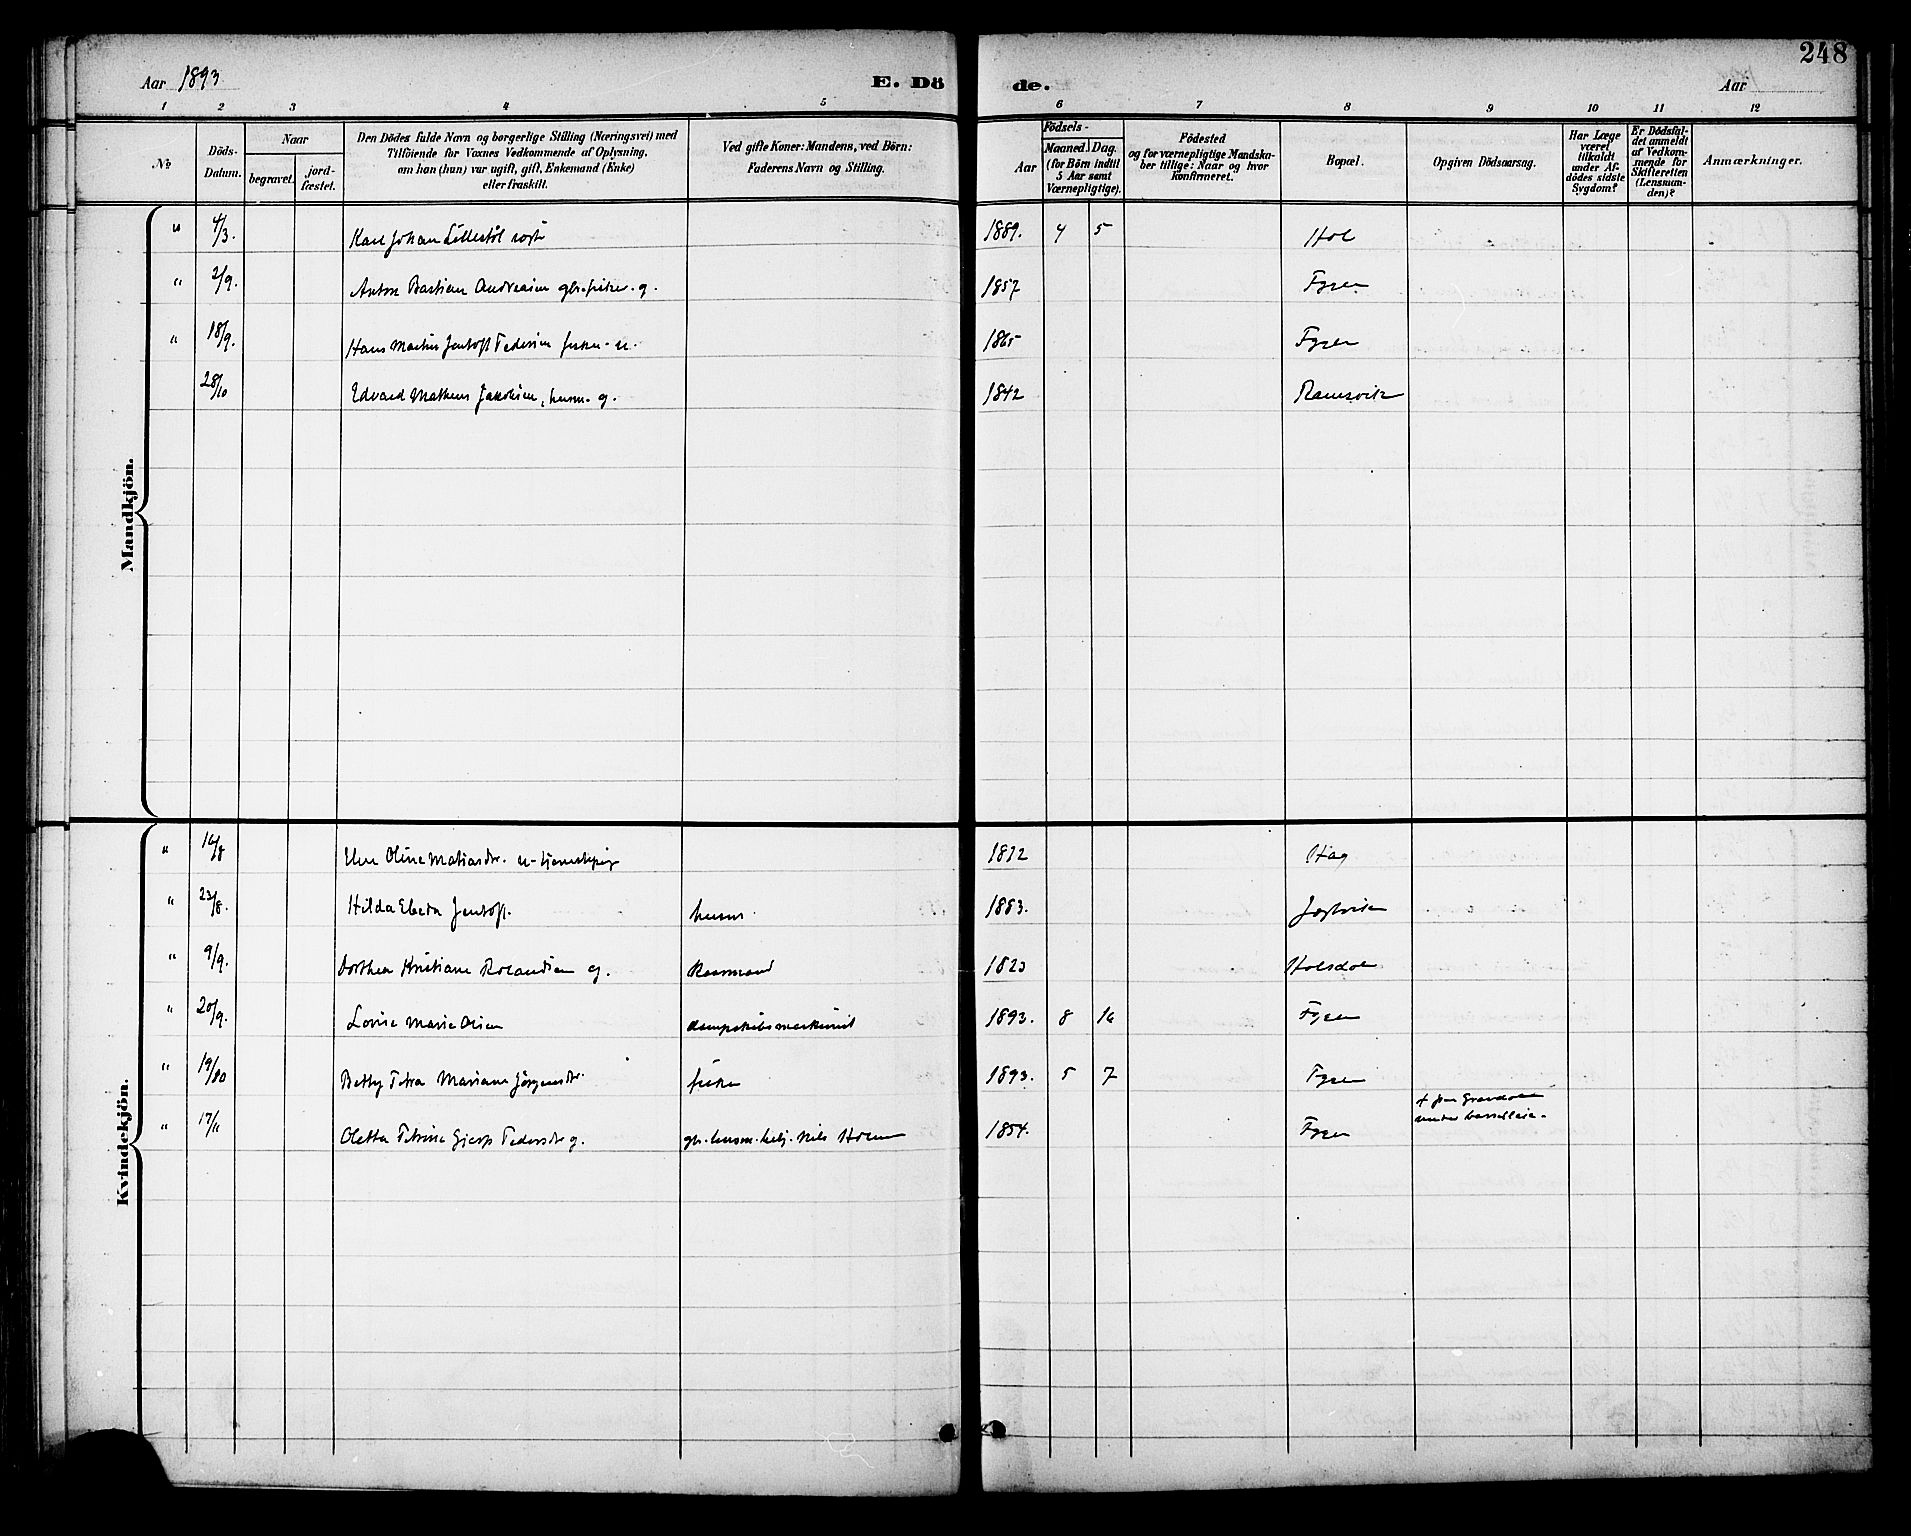 248
Aar 1893
E. Dö
de.
Aar
1 2 3 4 5 6 7 8 9 10 11 12
No
Döds-Datum.
Naar
begravet.
jordfæstet.
Den Dödes fulde Navn og borgerlige Stilling (Næringsvei) med
Tilföiende for Voxnes Vedkommende af Oplysning,
om han (hun) var ugift, gift, Enkemand (Enke)
eller fraskilt.
Ved gifte Koner: Mandens, ved Börn:
Faderens Navn og Stilling.
Födsels-
Aar
Maaned. Dag.
(for Börn indtil
5 Aar samt
Værnepligtige).
Födested
og for værnepligtige Mandska-
ber tillige: Naar og hvor
konfirmeret.
Bopæl.
Opgiven Dödsaarsag.
Har Læge
været
tilkaldt
under Af-
dödes sidste
Sygdom?
Er Dödsfal-
det anmeldt
af Vedkom-
mende for
Skifteretten
(Lensman-
den)?
Anmærkninger.
Mandkjön.
" 4/3. Karl Johan Lillestöl 1889. 4 5 Hol
" 2/9. Anton Bastian Andreasen gbr. fisker. g. 1857
" 18/9. Hans Martin Jentoft Pedersen fisker - u. 1865
28/10 Edvard Matheus Jakobsen, husm. g. 1842 Ramsvik
Kvindekjön.
" 16/8 Oline Matiasdr. u- 1872 Hag
" 23/8. Hilda Jentoft. husm. 1883.
" 9/9. Dorthea Kristiane Rolandsen g. 1823 Holsdal
" 20/9. Lovise Marie Olsen dampskibsmaskinist 1893. 8 16
" 19/10 Betty Petra Mariane Jörgensdr. fisker 1893. 5 7
" 17/11 Oletta Petrine Pedersdr g. gbr. husm. Nils 1854.
under barselleie.